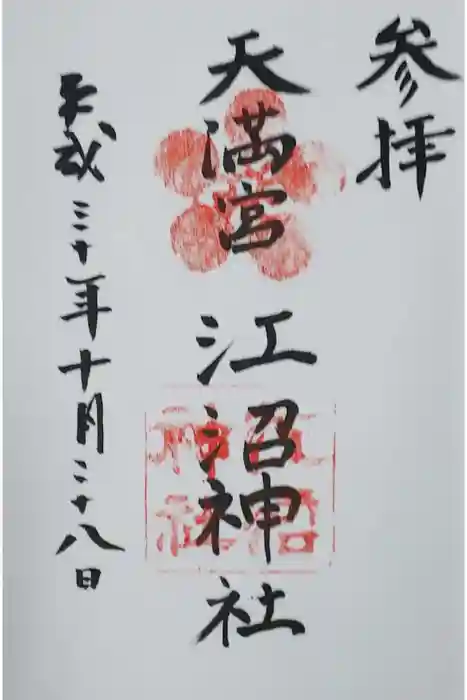 参拝
天満宮 江沼神社
平成三十年十月二十八日
江沼
神社